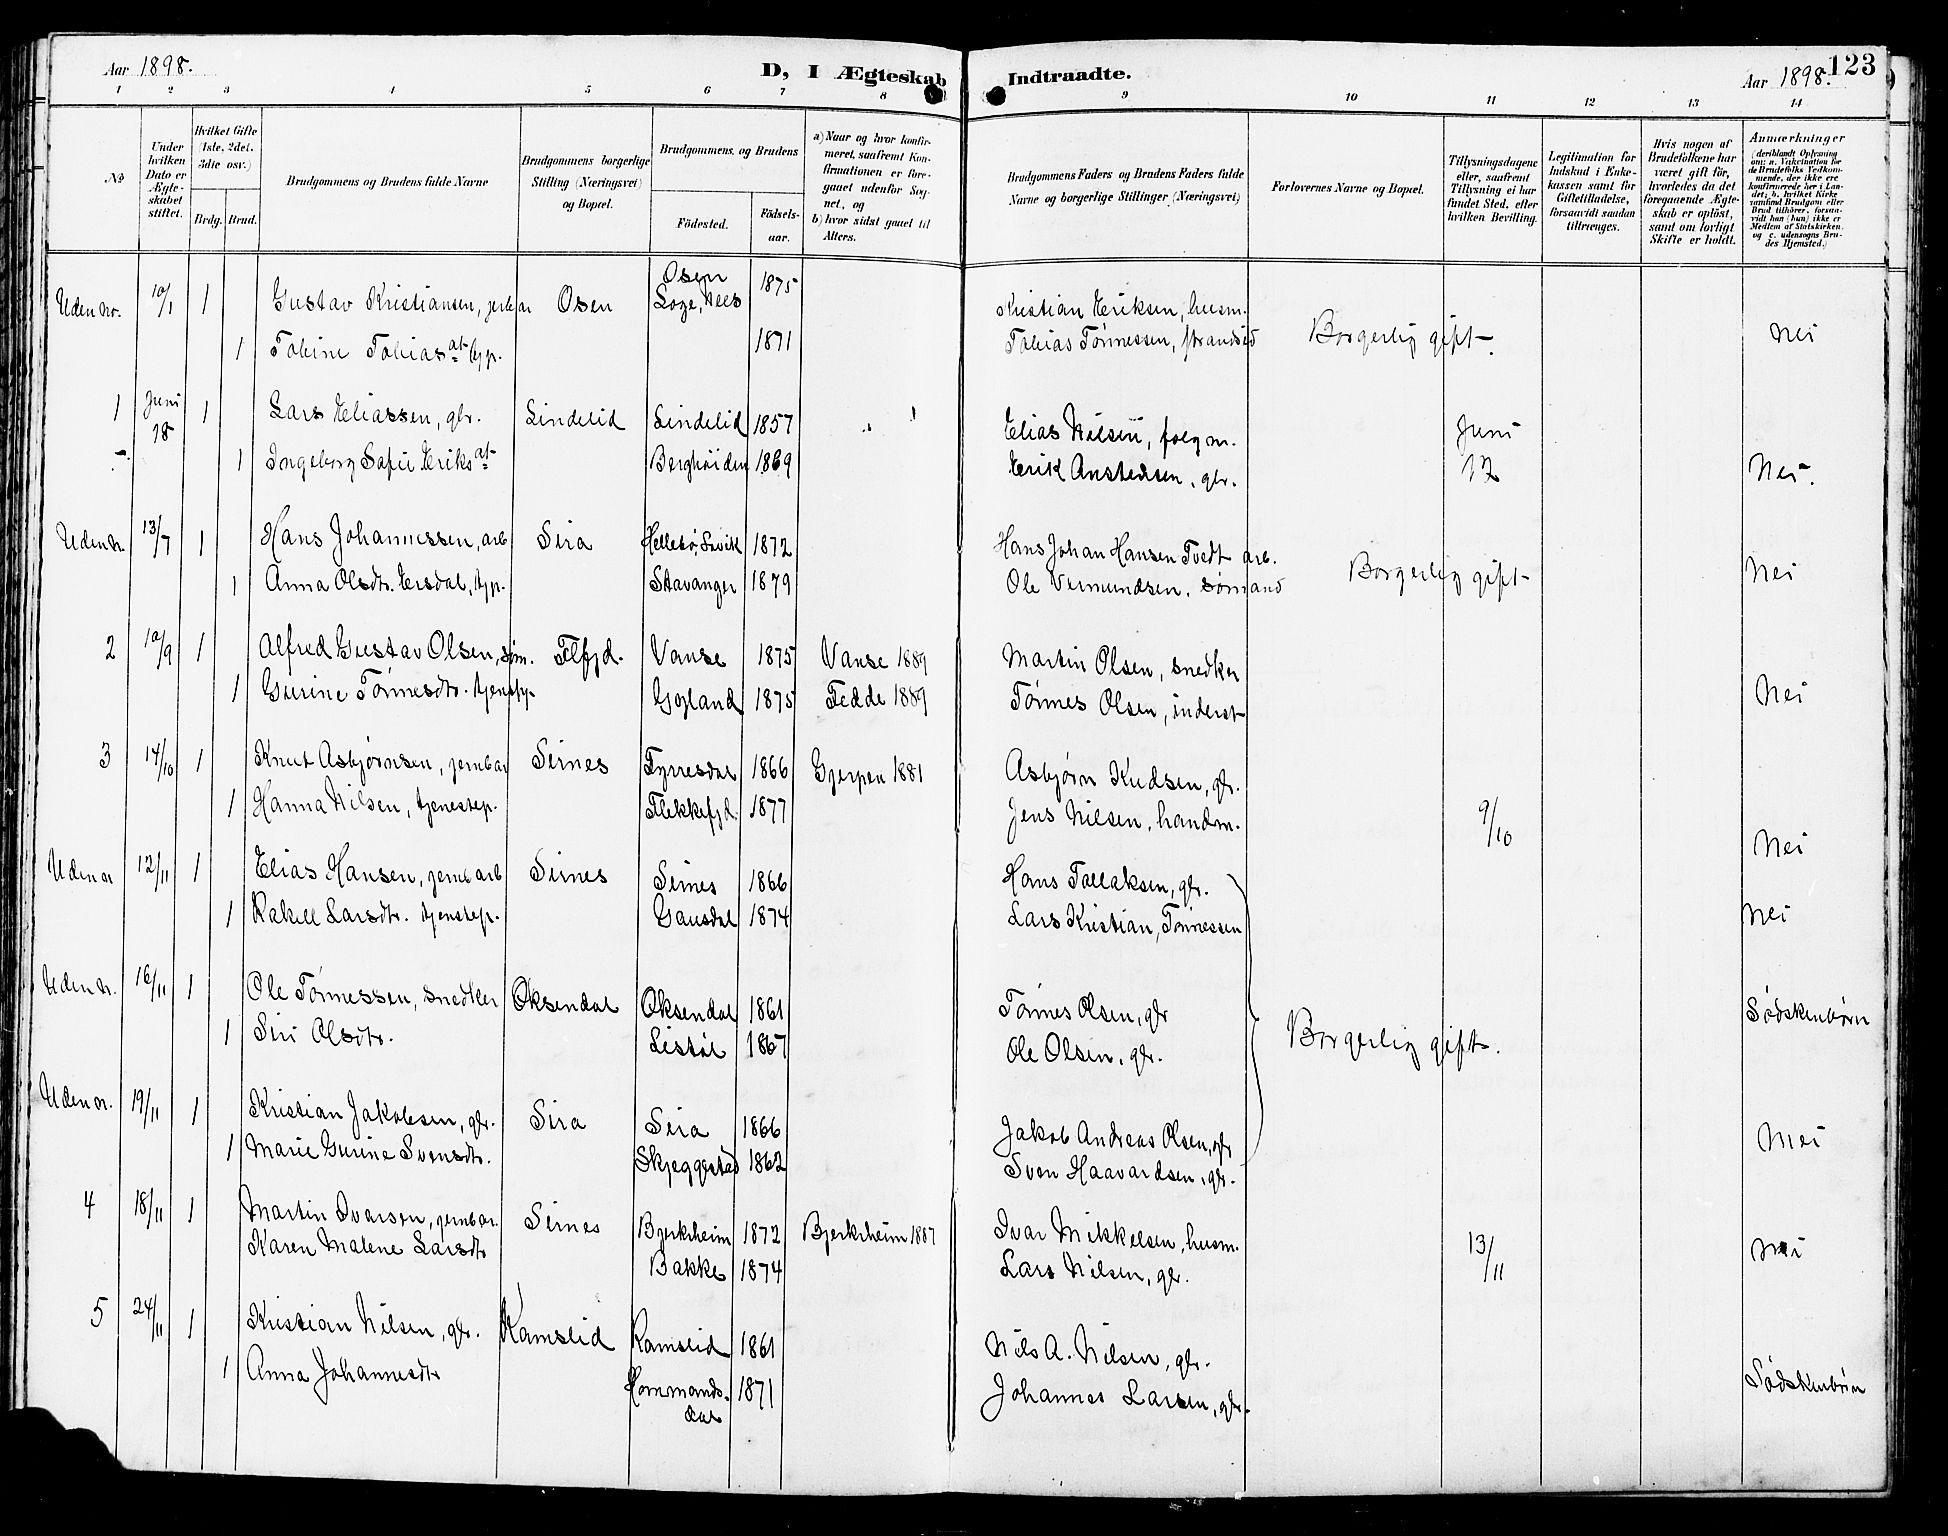 Aar 1898.
D, I Ægteskab Indtraadte.
Aar 1898.
123
1 2 3 4 5 6 7 8 9 10 11 12 13 14
No
Under hvilken Dato er Ægteskabet stiftet.
Hvilket Gifte (1ste, 2det, 3die osv.)
Brdg. Brud.
Brudgommens og Brudens fulde Navne
Brudgommens borgerlige Stilling (Næringsvei) og Bopæl.
Brudgommens og Brudens
Fødested.
Fødselsaar.
a) Naar og hvor konfirmeret, saafremt Konfirmationen er foregaaet udenfor Sognet, og
b) hvor sidst gaaet til Alters.
Brudgommens Faders og Brudens Faders fulde Navne og borgerlige Stillinger (Næringsvei)
Forlovernes Navne og Bopæl.
Tillysningsdagene eller, saafremt Tillysning ei har fundet Sted, efter hvilken Bevilling.
Legitimation for Indskud i Enkekassen samt for Giftetilladelse, forsaavidt saadan tiltrænges.
Hvis nogen af Brudefolkene har været gift før, hvorledes da det foregaaende Ægteskab er opløst, samt om lovligt Skifte er holdt.
Anmærkninger (deriblandt Oplysning om: a. Vakcination for de Brudefolks Vedkommende, der ikke ere konfirmerede her i Landet; b. hvilket Kirkesamfund Brudgom eller Brud tilhører, forsaavidt han (hun) ikke er Medlem af Statskirken, og c. udensogns Brudes Hjemsted.)
Uden nr. 10/1 1 Gustav Kristiansen, jernbar Osen Osen 1875 Kristian Eriksen, husm.
Loge, Nees
1 Tobine Tobiasat typ. 1871 Tobias Tønnessen, strandsid Borgerlig gift. Nei
1 Juni 18 1 Lars Eliassen, gbr. Lindelid Lindelid 1857 Elias Nilsen, folgm. Juni
1 Ingeborg Sofie Eriksat Berghøiden 1869 Erik Anstensen, gbr. 12 Nei.
Uden n. 13/7 1 Hans Johannessen, arb Sira Hellebø, Lavik 1872 Hans Johan Hansen Tvedt arb.
1 Anna Olsdtr. Ersdal, typ. Stavanger 1879 Ole Vermundsen, sømand Borgerlig gift Nei
2 10/9 1 Alfred Gustav Olsen, søm. Flfjd. Vanse 1875 Vanse 1889 Martin Olsen, snedker
1 Gurine Tønnesdtr. tjenstp. Gyland 1875 Fedde 1889 Tønnes Olsen, inderst Nei
3 14/10 1 Knut Asbjørnsen, jernbar Sirnes Fyrresdal 1866 Gjerpen 1881 Asbjørn Kudsen, gbr.
1 Hanna Nilsen, tjenestep. Flekkefjd. 1877 Jens Nilsen, handm. 9/10 Nei
Uden n 12/11 1 Elias Hansen, jernbarb Sirnes Sirnes 1866 Hans Tallaksen, gbr.
1 Rakel Larsdtr. tjenstep. Gausdal 1874 Lars Kristian, Tønnessen Nei
Uden n. 16/11 1 Ole Tønnessen, snedker Oksendal Oksendal 1861 Tønnes Olsen, gbr Sødskenbørn
1 Siri Olsdtr. Listøl 1867 Ole Olsen, gbr. Borgerlig gift.
Uden nr. 19/11 1 Kristian Jakobsen, gbr. Sira Sira 1866 Jakob Andreas Olsen, gbr Nei
1 Marie Gurine Svensdtr. Skjeggestad 1862 Sven Haavardsen, gbr.
4 18/11 1 Martin Ivarsen, jernbar. Sirnes Bjerkrheim 1872 Bjerkrheim 1887 Ivar Mikkelsen, husm. 13/11 Nei
Karen Malene Larsdtr Bakke 1874 Lars Nilsen, gbr.
5 24/11 1 Kristian Nilsen, gbr. Ramslid Ramslid 1861 Nils A. Nilsen, gbr.
1 Anna Johannesdtr Hommandsdal 1871 Johannes Larsen, gbr. Sødskenbørn